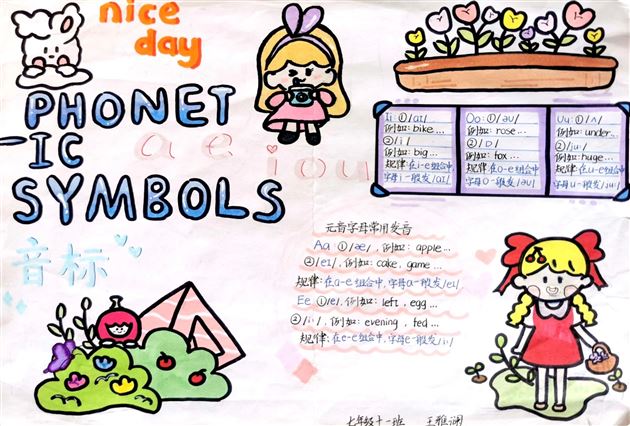 nice
day
PHONET
-IC
SYMBOLS
a e i o u
音标
Ii: ①/aɪ/
例如: bike...
②/i/
例如: big...
规律: 在i-e组合中,
字母i一般发/aɪ/
Oo: ①/əu/
例如: rose...
②/ɒ/
例如: fox...
规律: 在o-e组合中,
字母o一般发/əu/
Uu: ①/ʌ/
例如: under...
②/ju/
例如: huge...
规律: 在u-e组合中,
字母u一般发/ju:/
元音字母常用发音
Aa ①/æ/, 例如: apple...
②/eɪ/, 例如: cake, game...
规律: 在a-e组合中, 字母a一般发/eɪ/
Ee ①/e/, 例如: left, egg...
②/i:/, 例如: evening, fed...
规律: 在e-e组合中, 字母e一般发/i:/
七年级十一班 王雅澜